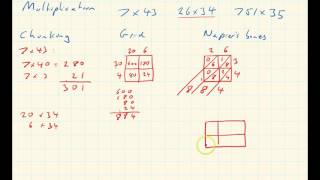 Multiplication 7×43 26×34 751×35
Chunking Grid Napier's bones
7×43
7×40 = 280
7×3 21
301
20×34
6×34
20 6
30 600 180
4 80 24
600
180
80
24
884
2 6
3
4
8 8 4